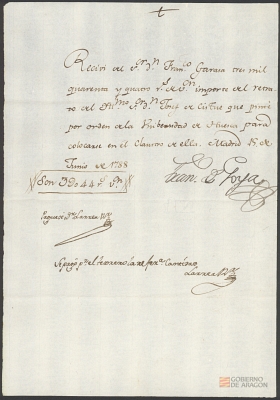 Recivi del Sr. Dn. Franco. Garasa tres mil
quarenta y quatro rs. de vn. importe del retra-
to del Dn. Josef de Cistue que pinté
por orden de la Universidad de Huesca para
colocarse en el Claustro de ella. Madrid
de Junio de 1788
Son 3044 rs. vn.
Fran. de Goya
Larrea
Se pagó pr. el
Larrea
GOBIERNO
DE ARAGON